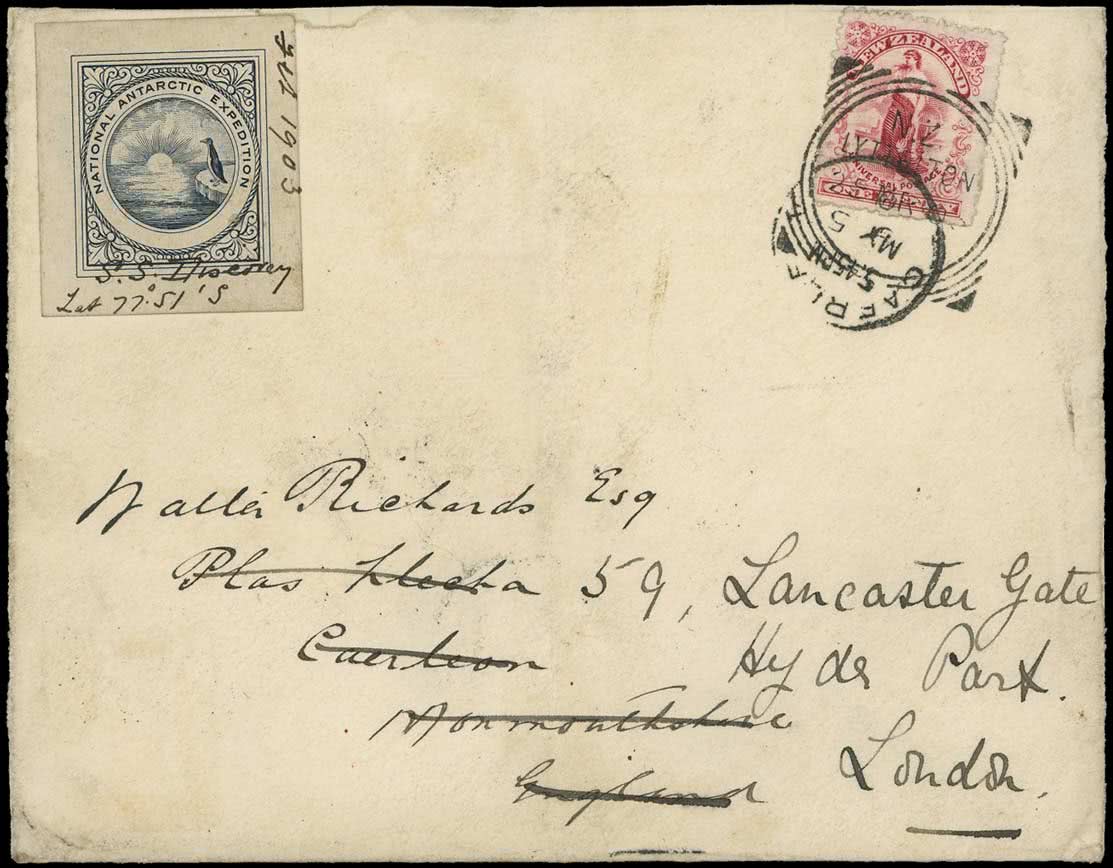 NATIONAL ANTARCTIC EXPEDITION
Feb 1903
S.S. Discovery
Lat 77°.51'S
NEW ZEALAND
UNIVERSAL POSTAGE
ONE PENNY
N.Z.
LYTTELTON
CAERLE
5.15PM
MY 5
Walter Richards Esq
Plas Llecha 59, Lancaster Gate
Caerleon Hyde Park.
Monmouthshire
England London.